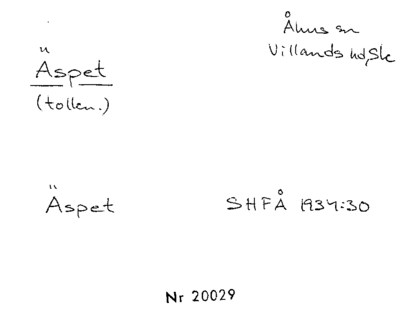 Åhus sn
Villands hd, Sk
Äspet
(tollen.)
Äspet SHFÅ 1937:30
Nr 20029